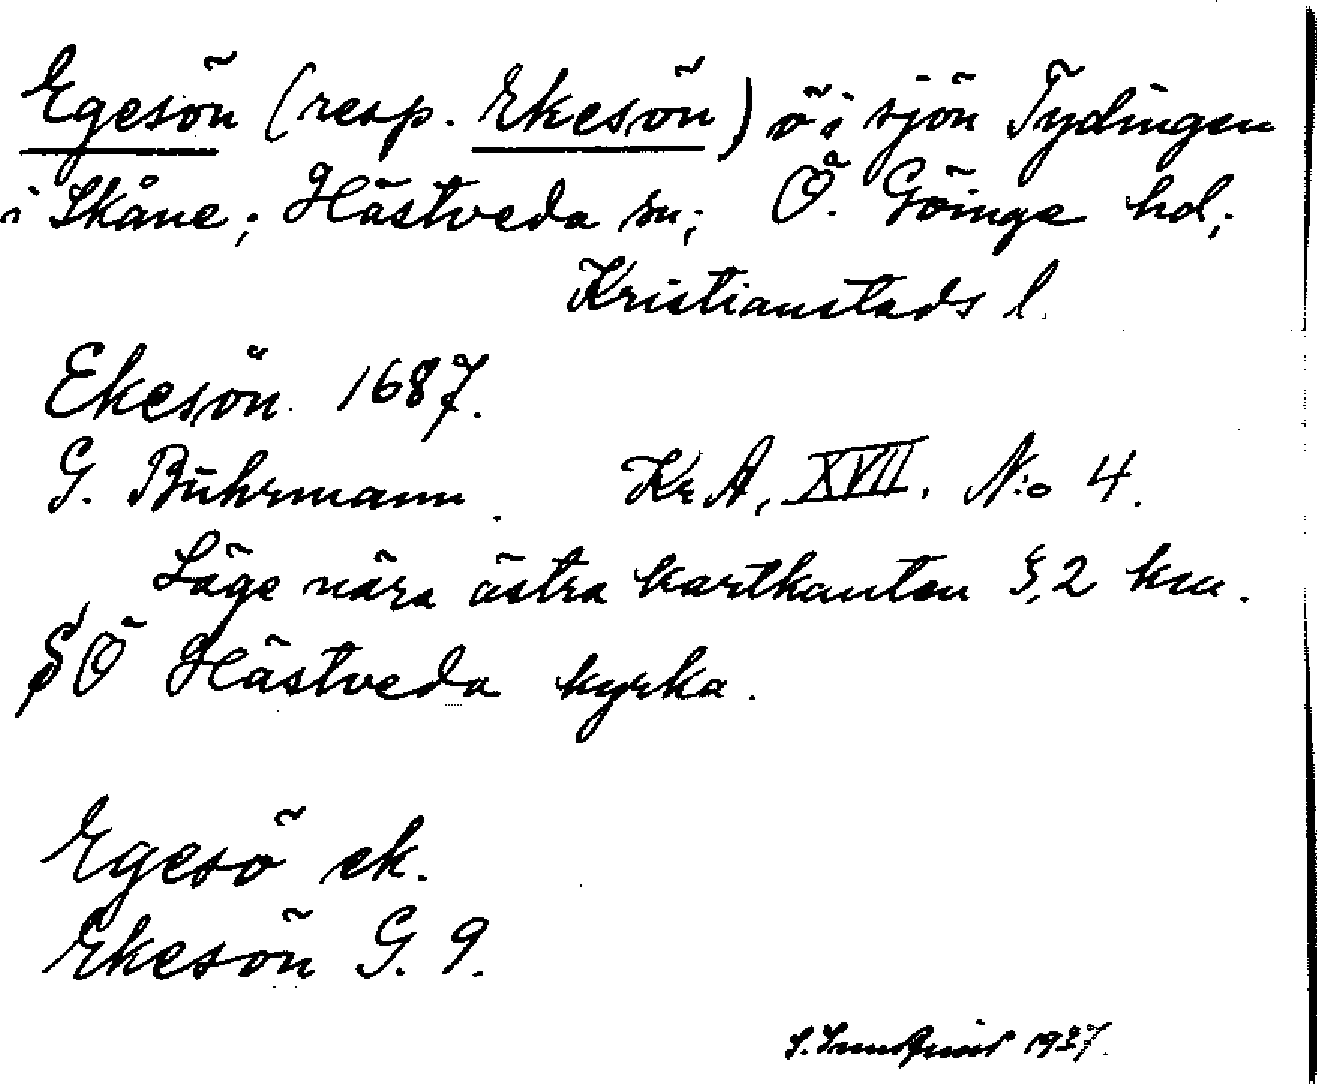 Egesön (resp. Ekesön) ö i sjön Tydingen
i Skåne; Hästveda sn; Ö. Göinge hd;
Kristianstads l.
Ekesön 1687.
G. Buhrmann. Kr A, XVII. N:o 4.
Läge nära östra kartkanten 3,2 km.
SÖ Hästveda kyrka.
Egesö ek.
Ekesön G. 9.
1937.